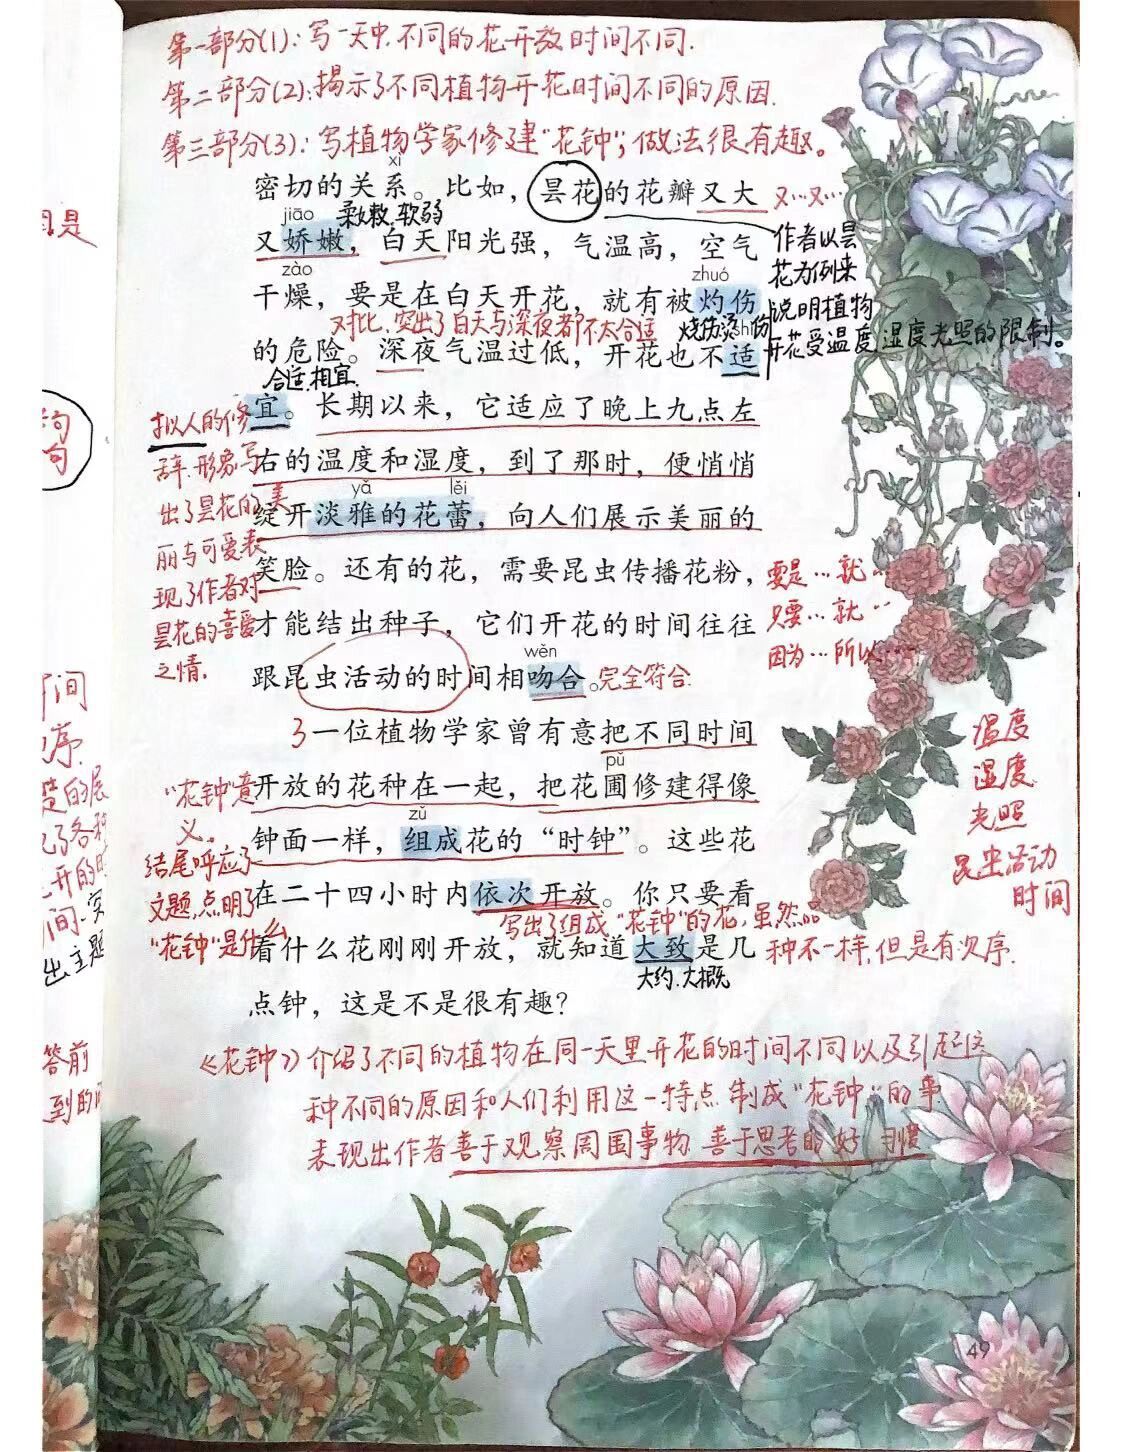 第一部分(1):写一天中,不同的花开放时间不同.
第二部分(2):揭示了不同植物开花时间不同的原因.
第三部分(3):写植物学家修建“花钟”,做法很有趣。
xì
密切的关系。比如，昙花的花瓣又大
又…又…
jiāo
柔嫩.软弱
又娇嫩，白天阳光强，气温高，空气
作者以昙
花为例来
说明植物
开花受温度,湿度光照的限制。
zào
zhuó
干燥，要是在白天开花，就有被灼伤
对比,突出了白天与深夜都不太合适
烧伤烫伤
shì
的危险。深夜气温过低，开花也不适
合适.相宜.
宜。长期以来，它适应了晚上九点左
右的温度和湿度，到了那时，便悄悄
yǎ
lěi
绽开淡雅的花蕾，向人们展示美丽的
笑脸。还有的花，需要昆虫传播花粉，
才能结出种子，它们开花的时间往往
wěn
跟昆虫活动的时间相吻合。
完全符合.
拟人的修
辞.形象写
出了昙花的美
丽与可爱表
现了作者对
昙花的喜爱
之情.
要是…就…
只要…就…
因为…所以…
3一位植物学家曾有意把不同时间
pǔ
开放的花种在一起，把花圃修建得像
zǔ
钟面一样，组成花的“时钟”。这些花
在二十四小时内依次开放。你只要看
写出了组成“花钟”的花,虽然品
种不一样,但是有次序.
看什么花刚刚开放，就知道大致是几
大约.大概
点钟，这是不是很有趣？
“花钟”意
义。
结尾呼应了
文题,点明了
“花钟”是什么
温度
湿度
光照
昆虫活动
时间
《花钟》介绍了不同的植物在同一天里开花的时间不同以及引起这
种不同的原因和人们利用这一特点制成“花钟”的事
表现出作者善于观察周围事物.善于思考的好习惯
是
句
句
时间
序.
的展
了各种
开的时
间.突
出主题
答前
到的
49